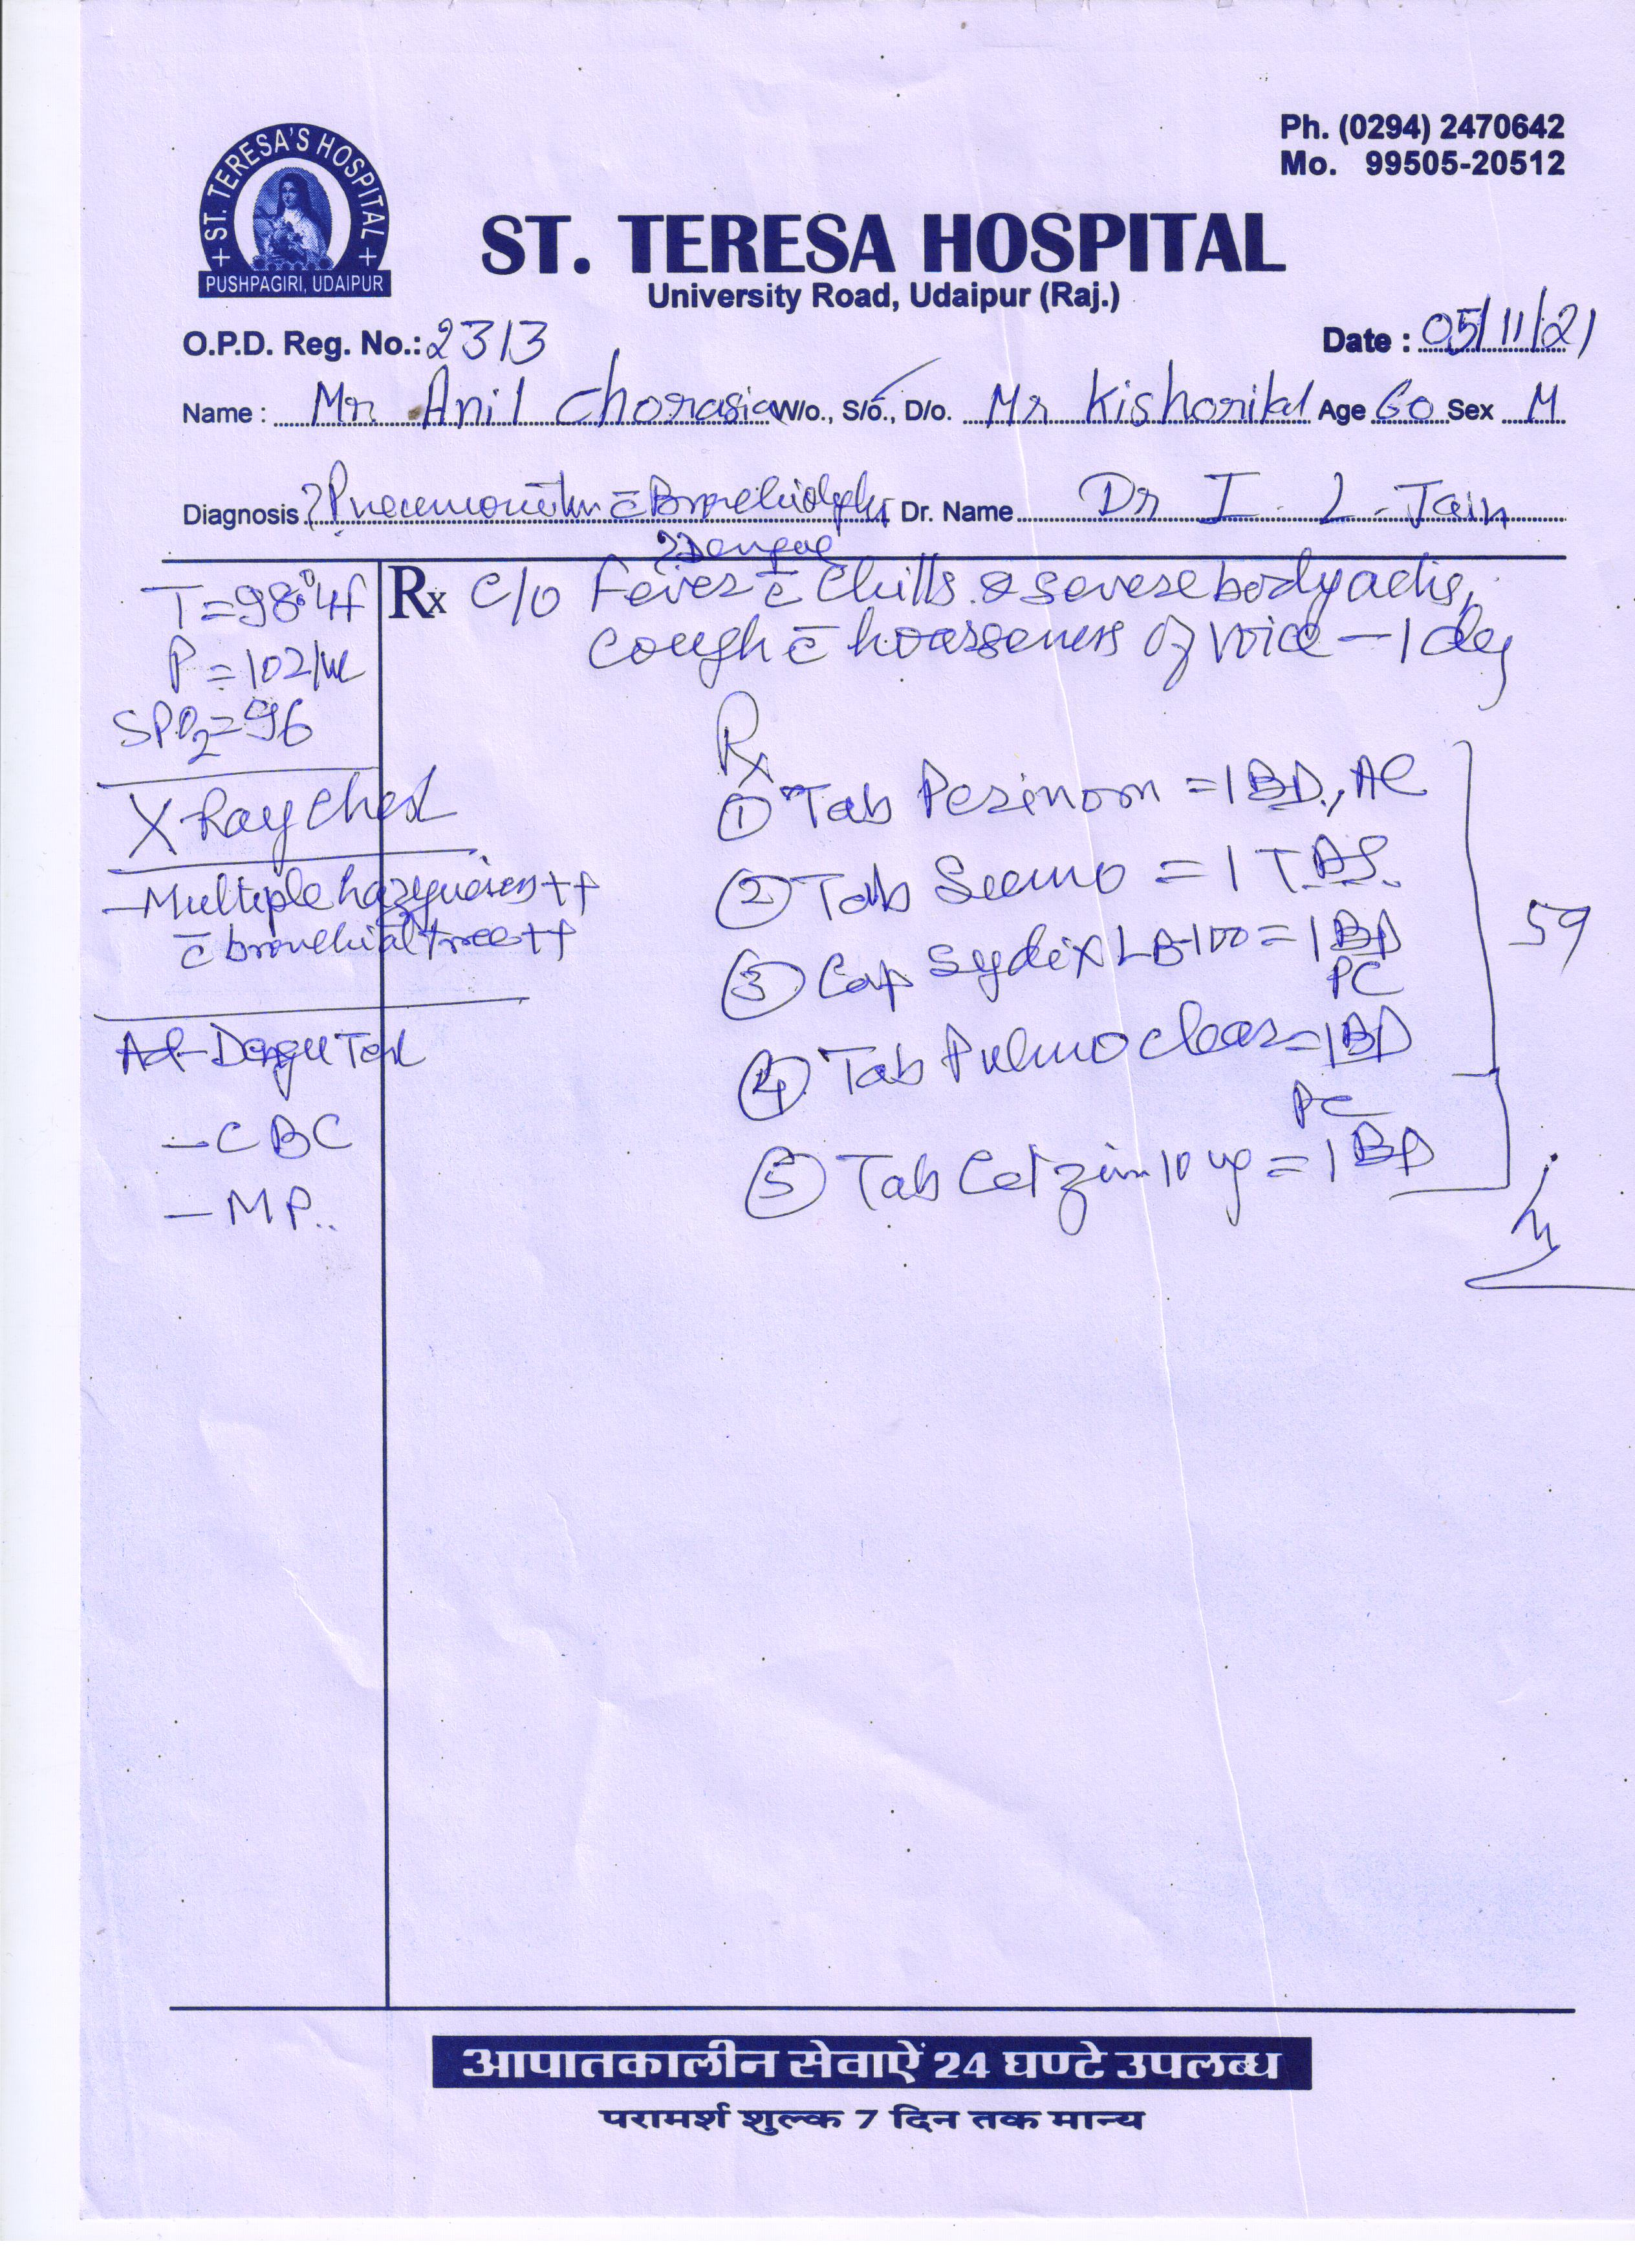 ST. TERESA'S HOSPITAL
PUSHPAGIRI, UDAIPUR
Ph. (0294) 2470642
Mo. 99505-20512
ST. TERESA HOSPITAL
University Road, Udaipur (Raj.)
O.P.D. Reg. No.: 2313
Date : 05/11/21
Name : Mr. Anil Chorasia W/o., S/o., D/o. Mr Kishorilal Age 60 Sex M
Diagnosis ? c̄ Dr. Name Dr I. L. Jain
? Dengue
T = 98.4f
P = 102/
SPO2 = 96
X-Ray Chest
- Multiple ++
c̄ bronchial tree ++
Ad- Dengu Test
- CBC
- MP..
Rx C/o Fever c̄ Chills & severe bodyaches,
cough c̄ hoarseness of voice - 1 day
Rx
① Tab Perinorm = 1 BD, AC
② Tab Sumo = 1 TDS.
③ Cap Sydix LB-100 = 1 BD
PC
④ Tab Pulmoclear = 1 BD
PC
⑤ Tab Cetzin 10 mg = 1 BD
आपातकालीन सेवाऐं 24 घण्टे उपलब्ध
परामर्श शुल्क 7 दिन तक मान्य